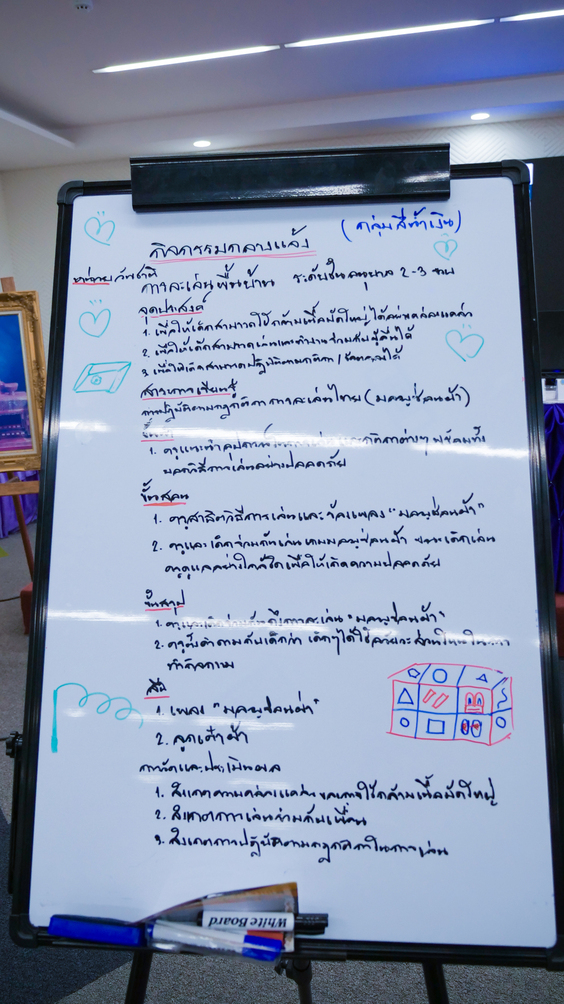 (กลุ่มสีน้ำเงิน)
กิจกรรมกลางแจ้ง
การละเล่นพื้นบ้าน ระดับชั้นอนุบาล 2-3 ขวบ
จุดประสงค์
1. เพื่อให้เด็กสามารถใช้กล้ามเนื้อมัดใหญ่ได้อย่างคล่องแคล่ว
2. เพื่อให้เด็กสามารถเล่นและทำงานร่วมกับผู้อื่นได้
3. เพื่อให้เด็กสามารถปฏิบัติตามกติกา / ข้อตกลงได้
สาระการเรียนรู้
การปฏิบัติตามกฎกติกาการละเล่นไทย (มอญซ่อนผ้า)
1. ครูแนะนำอุปกรณ์ กติกาต่างๆ พร้อมทั้ง
บอกวิธีการเล่นอย่างปลอดภัย
ขั้นสอน
1. ครูสาธิตวิธีการเล่นและร้องเพลง "มอญซ่อนผ้า"
2. ครูและเด็กร่วมกันเล่นเกมมอญซ่อนผ้า ขณะเด็กเล่น
ครูดูแลอย่างใกล้ชิดเพื่อให้เกิดความปลอดภัย
ขั้นสรุป
1. ครูและเด็กร่วมกัน การละเล่น "มอญซ่อนผ้า"
2. ครูตั้งคำถามกับเด็กว่า เด็กๆได้ใช้อวัยวะส่วนใดในการ
ทำกิจกรรม
สื่อ
1. เพลง "มอญซ่อนผ้า"
2. ลูกเต๋าผ้า
การวัดและประเมินผล
1. สังเกตความคล่องแคล่ว ขณะการใช้กล้ามเนื้อมัดใหญ่
2. สังเกตการเล่นร่วมกับเพื่อน
3. สังเกตการปฏิบัติตามกฎกติกาในการเล่น
White Board